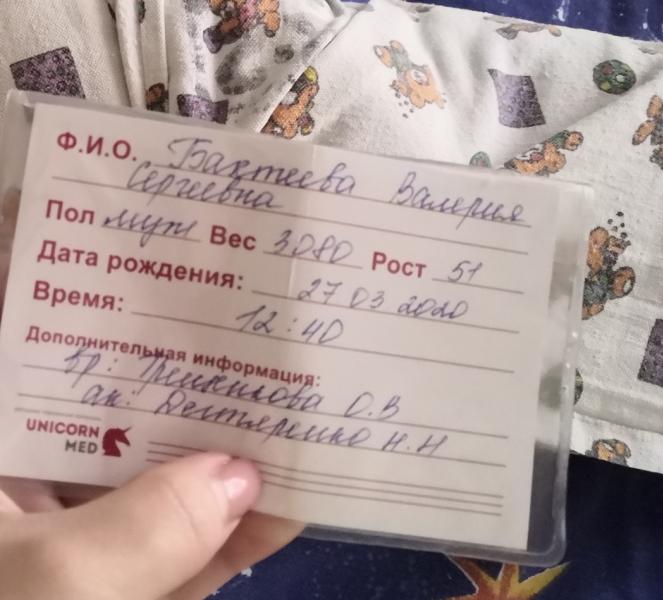 Ф.И.О. Бахтеева Валерия
Сергеевна
Пол муж Вес 3080 Рост 51
Дата рождения: 27 03 2020
Время: 12:40
Дополнительная информация:
Вр: О.В
ак: Дегтяренко Н.Н
UNICORN
MED